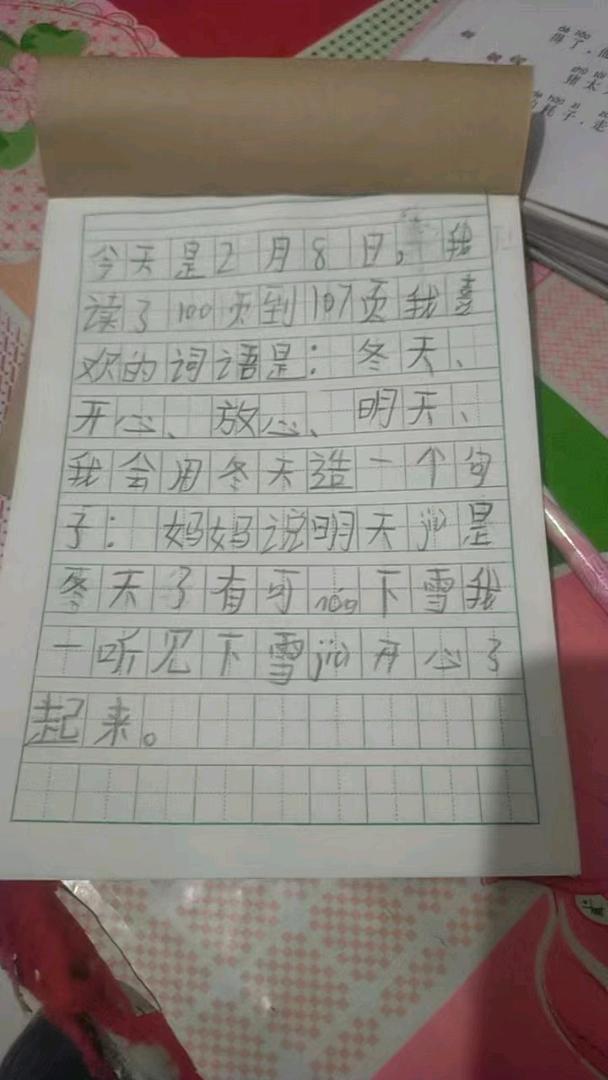 得了，
猪太
耗子，走
今天是2月8日，我
读了100页到107页我喜
欢的词语是：冬天、
开心、放心、明天、
我会用冬天造一个句
子：妈妈说明天jiù是
冬天了有可néng下雪我
一听见下雪jiù开心了
起来。